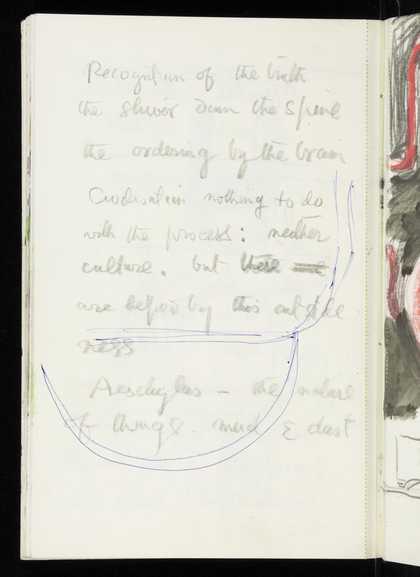 Recognition of the truth
the shiver down the spine
the ordering by the brain
Civilisation nothing to do
with the process: neither
culture. but there are
are by this
ness
Aeschylus – the nature
of things. mud & dust